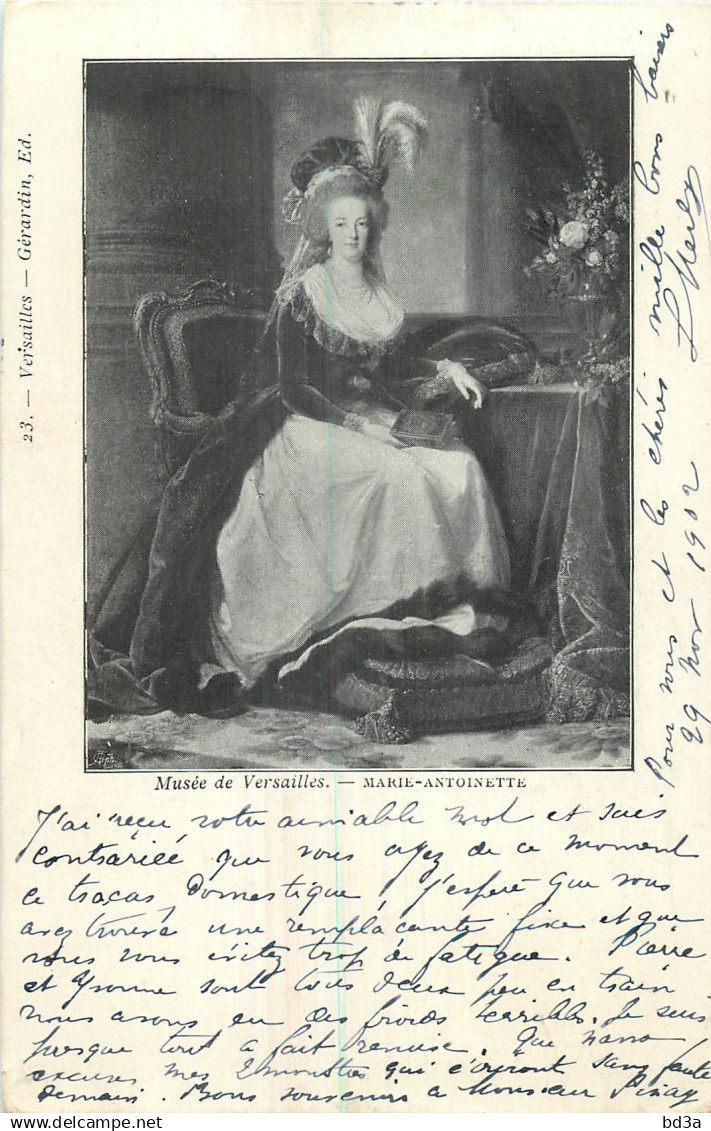 23. — Versailles — Gérardin, Ed.
Musée de Versailles. — MARIE-ANTOINETTE
J'ai reçu votre aimable mot et suis
contrariée que vous ayez de ce moment
ce tracas domestique, j'espère que vous
avez trouvé une remplaçante fixe et que
vous vous évitez trop de fatigue. Pierre
et Yvonne sont tous deux peu en train
nous avons eu des froids terribles. Je suis
presque tout à fait remise. Que nana
excuse mes 2 monstres qui écriront sans faute
demain. Bons souvenirs à Monsieur
Pour vous et les chéris mille bons baisers
29 nov 1902